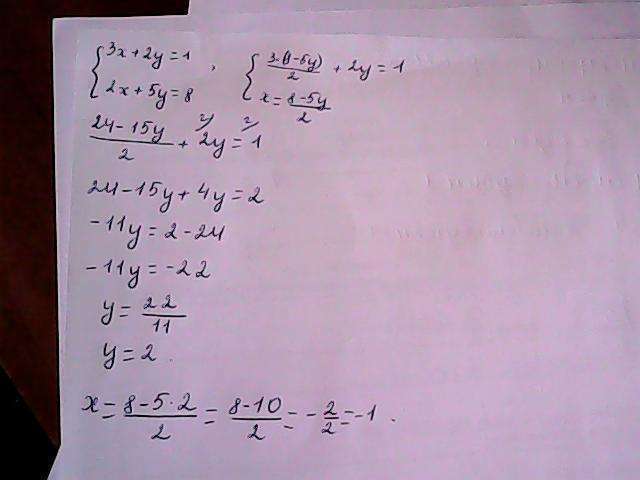 { 3x + 2y = 1 , { 3·(8-5y)/2 + 2y = 1
{ 2x + 5y = 8 { x = (8-5y)/2
(24-15y)/2 + 2y^(2/ = 1^(2/
24-15y + 4y = 2
-11y = 2-24
-11y = -22
y = 22/11
y = 2.
x = (8-5·2)/2 = (8-10)/2 = -2/2 = -1.